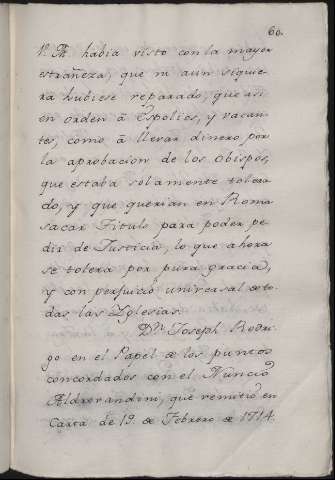 60.
V. M. habia visto con la mayor
estrañeza, que ni aun siquie-
ra hubiese reparado, que asi
en orden à Espolios, y vacan-
tes, como à llevar dinero por
la aprobacion de los Obispos,
que estaba solamente tolera-
do, y que querian en Roma
sacar Titulo para poder pe-
dir de Justicia, lo que ahora
se tolera por pura gracia,
y con perjuicio universal de to-
das las Yglesias.
Dn. Joseph Rodri-
go en el Papel de los puntos
concordados con el Nuncio
Aldrovandini, que remitio en
Carta de 19. de Febrero de 1714.